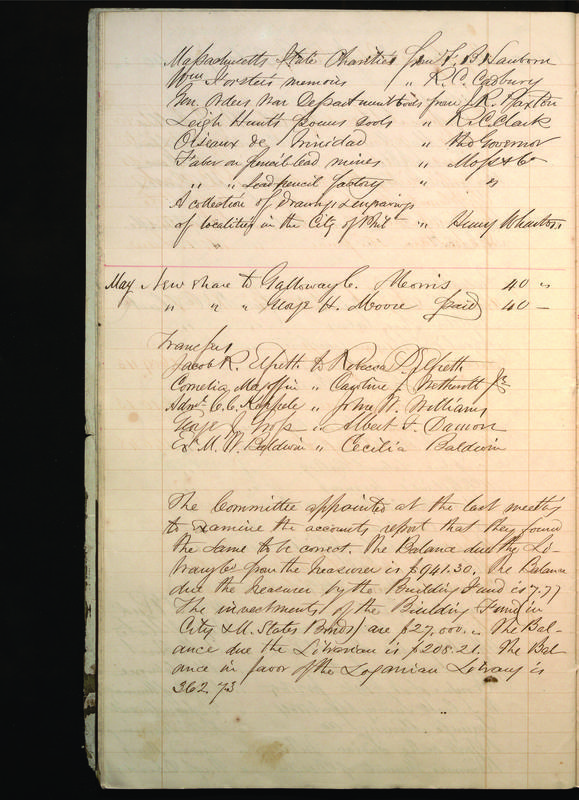 Massachusetts State Charities from F. B Sanborn
Wm Forster's memoirs " R. C. Cadbury
Gen. Orders War Department 6 vols from J. R. Paxton
Leigh Hunts poems 2 vols " R. C. Clark
Oiseaux de Trinidad " the Governor
Faber on pencil lead mines " Moss & Co
" " Lead pencil factory " "
A collection of drawings & engravings
of localities in the City of Phil " Henry Wharton
May New share to Galloway C. Morris 40 "
" " " George H. Moore paid 40 —
Transfers
Jacob R. Elfreth to Rebecca P. Elfreth
Cornelia " Caroline J.
Admr. C. C. " John W. Williams
George J. Gross " Albert F. Damon
Ex. M. W. Baldwin " Cecilia Baldwin
The Committee appointed at the last meeting
to examine the accounts report that they found
the same to be correct. The Balance due the Li-
brary from the Treasurer is $941.30. The Balance
due the Treasurer by the Building Fund is 7.77
The investments of the Building Fund (in
City & U. States Bonds) are $27,000.. The Bal-
ance due the Librarian is $208.21. The Bal
ance in favor of the Loganian Library is
362.73